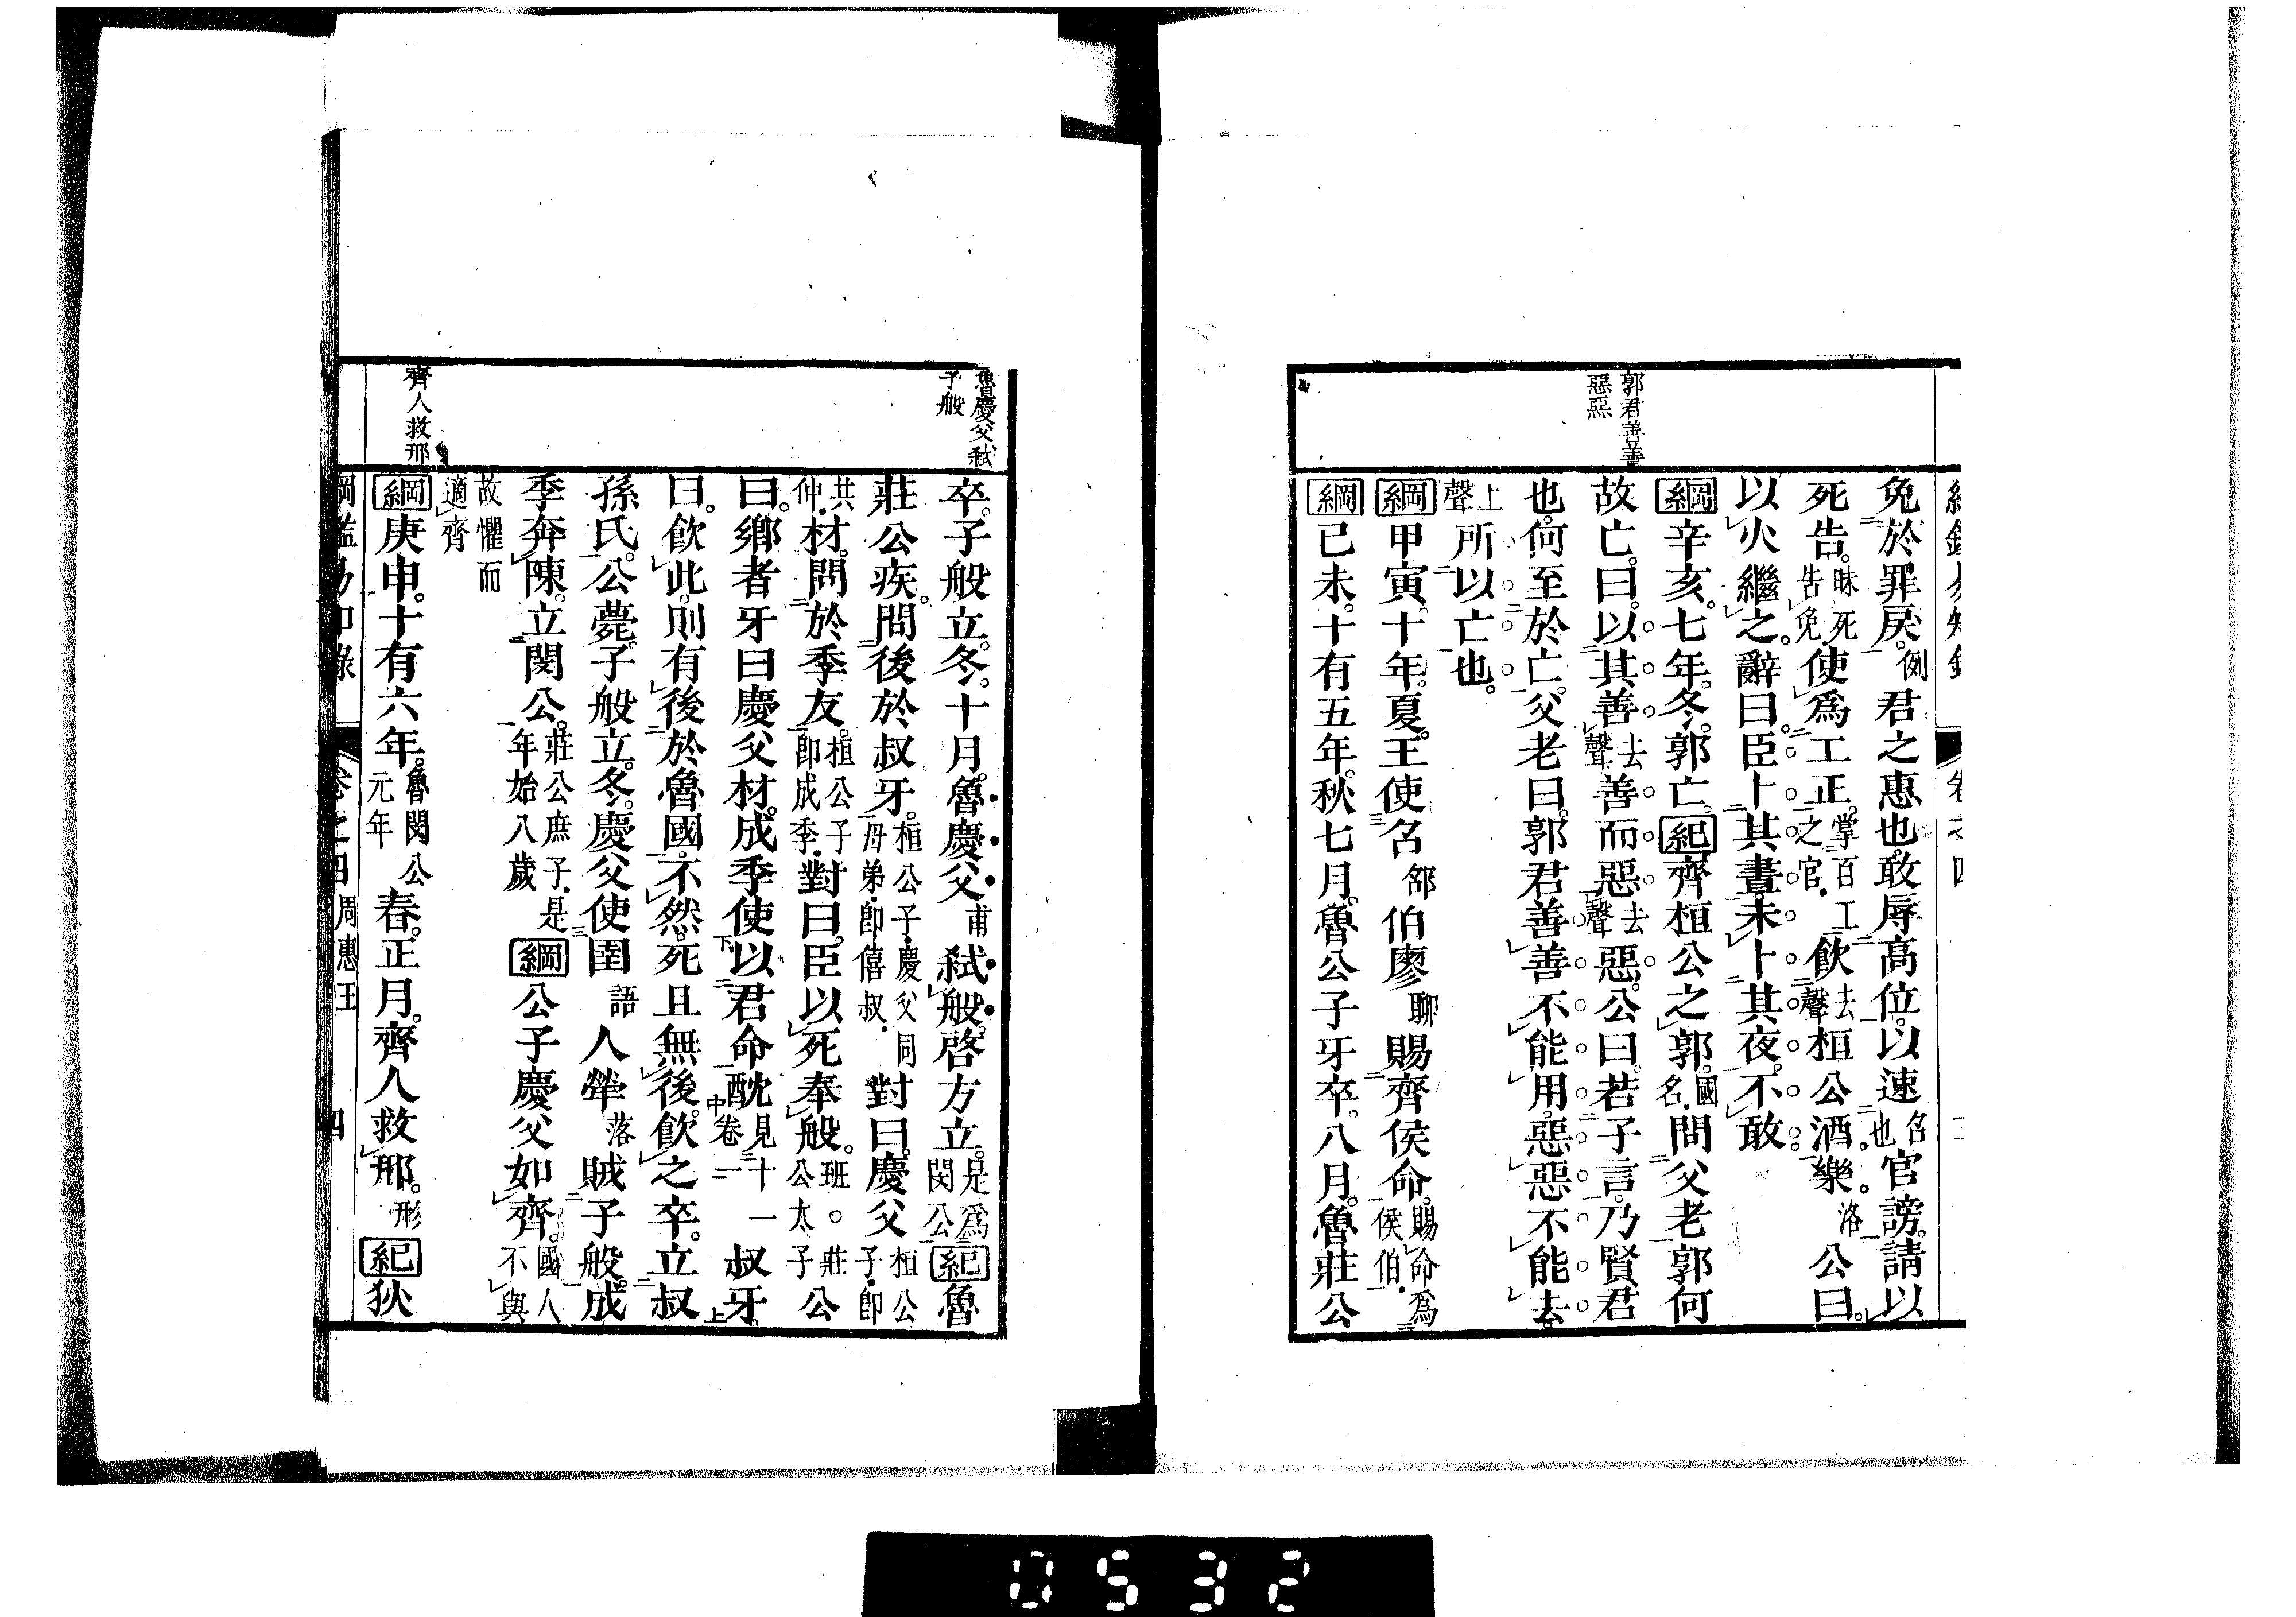 郭君善善
惡惡
免於罪戾例君之惠也敢辱高位以速召也官謗請以
死告昧死告免使爲工正掌百工之官飲去聲桓公酒樂洛公曰
以火繼之辭曰臣卜其晝未卜其夜不敢
綱辛亥七年冬郭亡紀齊桓公之郭國名問父老郭何
故亡曰以其善去聲善而惡去聲惡公曰若子言乃賢君
也何至於亡父老曰郭君善善不能用惡惡不能去
上聲所以亡也
綱甲寅十年夏王使召邵伯廖聊賜齊侯命賜命爲侯伯
綱己未十有五年秋七月魯公子牙卒八月魯莊公
魯慶父弒
子般
卒子般立冬十月魯慶父甫弒般啓方立是爲閔公紀魯
莊公疾問後於叔牙桓公子慶父同母弟卽僖叔對曰慶父桓公子卽
共仲材問於季友桓公子卽成季對曰臣以死奉般班○莊公太子公
曰鄉者牙曰慶父材成季使以君命酖見十一卷二叔牙
曰飲此則有後於魯國不然死且無後飲之卒立叔
孫氏公薨子般立冬慶父使圉語人犖落賊子般成
季奔陳立閔公莊公庶子是年始八歲綱公子慶父如齊國人不與
故懼而適齊
齊人救邢
綱庚申十有六年魯閔公元年春正月齊人救邢形紀狄
綱鑑易知錄 卷之四 周惠王 四
0532